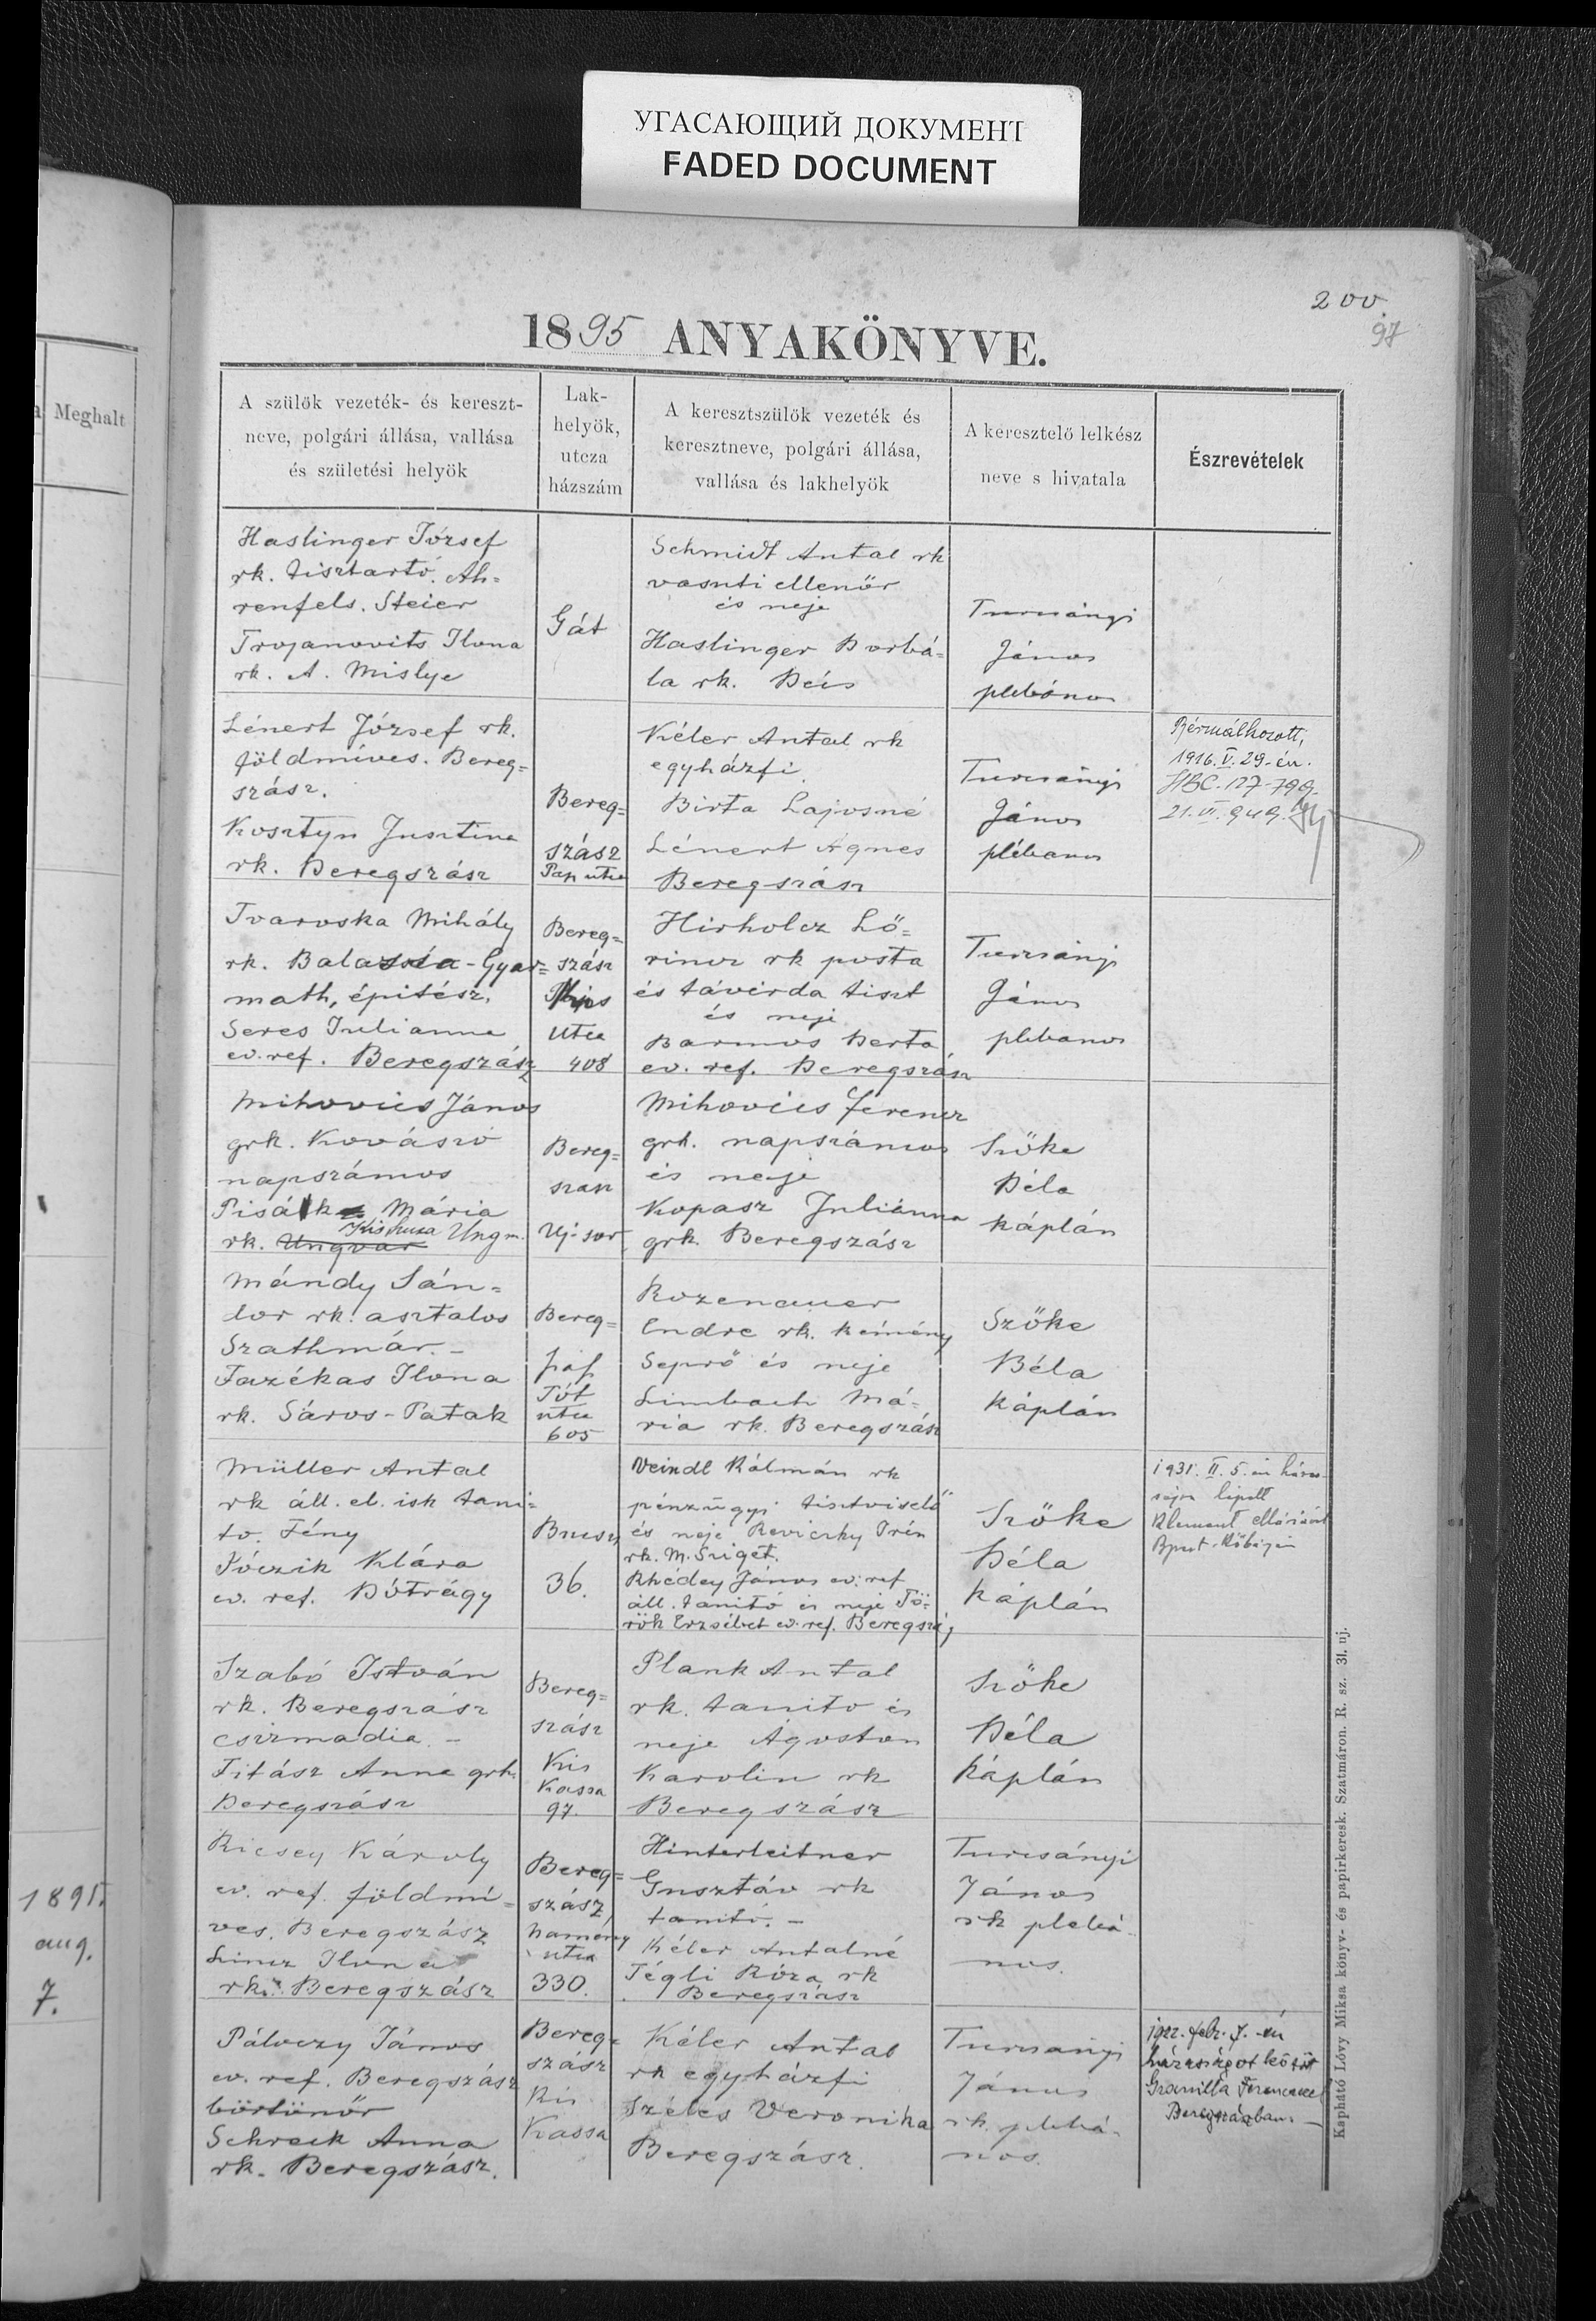 УГАСАЮЩИЙ ДОКУМЕНТ
FADED DOCUMENT
200.
97
1895 ANYAKÖNYVE.
Meghalt
A szülök vezeték- és kereszt-
neve, polgári állása, vallása
és születési helyök
Lak-
helyök,
utcza
házszám
A keresztszülök vezeték és
keresztneve, polgári állása,
vallása és lakhelyök
A keresztelő lelkész
neve s hivatala
Észrevételek
Haslinger József
rk. tisztartó. Ah-
renfels. Steier
Trojanovits Ilona
rk. A. Mislye
Gát
Schmidt Antal rk
vasuti ellenőr
és neje
Haslinger Borbá-
la rk. Bécs
Turcsányi
János
plebános
Lénert József rk.
földmíves. Bereg-
szász.
Kosztyn Jusztina
rk. Beregszász
Bereg-
szász
Pap utca
Kéler Antal rk
egyházfi
Birta Lajosné
Lénert Ágnes
Beregszász
Turcsányi
János
plébanos
Bérmálkozott,
1916. V. 29-én.
21. VI. 949.
Tvaroska Mihály
rk. Balassa-Gyar-
math, építész.
Seres Julianna
ev. ref. Beregszász
Bereg-
szász
utca
408
Hirholcz Lő-
rincz rk posta
és távirda tiszt
és neje
Barmos Berta
ev. ref. Beregszász
Turcsányi
János
plebanos
Mihovics János
grk. Kovászó
napszámos
Pisák Mária
rk. Ungvár Ungm.
Bereg-
szasz
Uj-sor
Mihovics Ferencz
grk. napszámos
és neje
Kopasz Juliánna
grk. Beregszász
Szőke
Béla
káplán
Mándy Sán-
dor rk. asztalos
Szathmár. -
Fazékas Ilona
rk. Sáros-Patak
Bereg-
Tót
utca
605
Rozenauer
Endre rk. kémény
Seprő és neje
Limbach Má-
ria rk. Beregszász
Szőke
Béla
káplán
Müller Antal
rk áll. el. isk tani-
tó. Fény
Kóczik Klára
ev. ref. Bótrágy
36.
Veindl Kálmán rk
pénzügyi tisztviselő
és neje Reviczky Irén
rk. M. Sziget.
Rhédey János ev. ref
áll. tanító és neje Tö-
rök Erzsébet ev. ref. Beregszász
Szőke
Béla
káplán
1931. II. 5. én háza-
ságra lépett
Bpest-Kőbányán
Szabó István
rk. Beregszász
csizmadia. -
Titász Anna grk.
Beregszász
Bereg-
szász
Kis
Kassa
97.
Plank Antal
rk. tanito és
neje Ágoston
Karolin rk
Beregszász
Szőke
Béla
káplán
1895.
aug.
7.
Ricsey Károly
ev. ref. földmí-
ves. Beregszász
Lincz Ilona
rk. Beregszász
Bereg-
szász
Namény
utca
330.
Hinterleitner
Gusztáv rk
tanitó. -
Kéler Antalné
Tégli Róza rk
Beregszász
Turcsányi
János
rk plebá-
nos.
Pálóczy János
ev. ref. Beregszász
börtönőr
Schreck Anna
rk. Beregszász.
Bereg-
szász
Kis
Kassa
Kéler Antal
rk egyházfi
Széles Veronika
Beregszász.
Turcsányi
János
rk. plebá-
nos.
1922. febr. 7.-én
házasságot kötött
Granilla Ferenczel
Beregszászban. -
Kapható Lővy Miksa könyv- és papirkeresk. Szatmáron. R. sz. 31. uj.